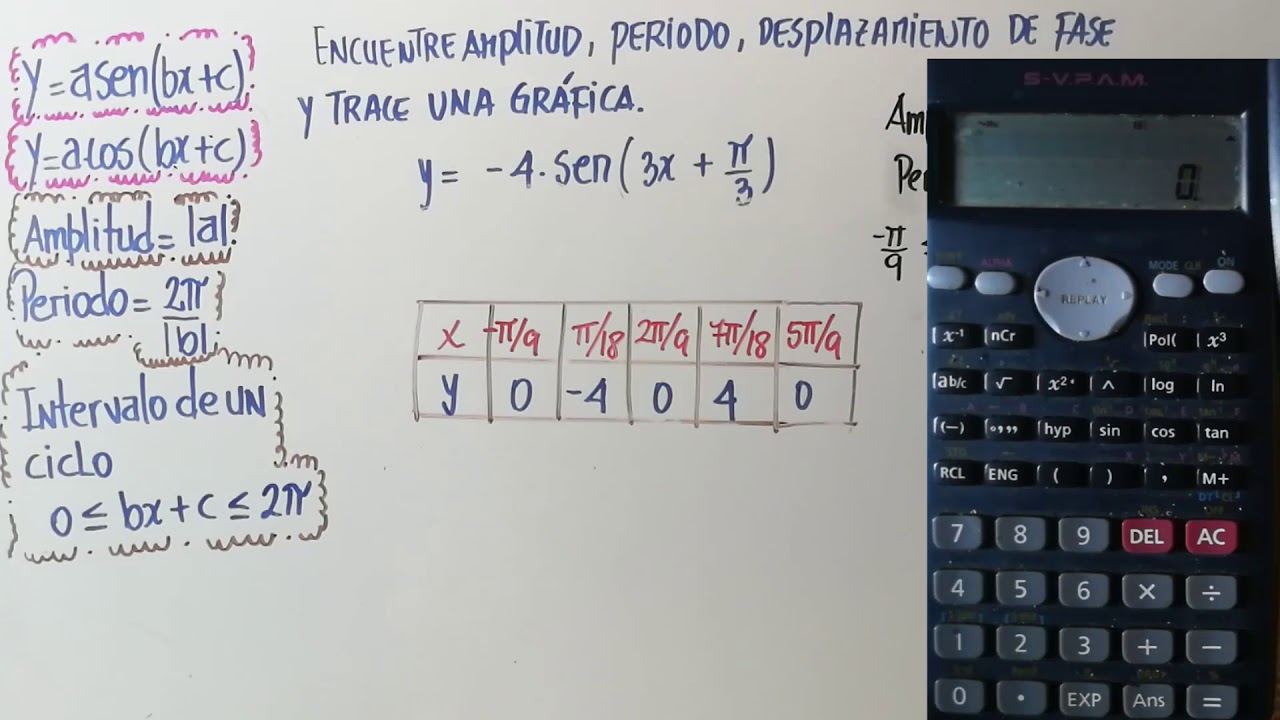 y=asen(bx+c)
y=acos(bx+c)
Amplitud=|a|
Periodo = 2π/|b|
Intervalo de UN
ciclo
0 ≤ bx+c ≤ 2π
ENCUENTRE AMPLITUD, PERIODO, DESPLAZAMIENTO DE FASE
Y TRACE UNA GRÁFICA.
y = -4·sen(3x + π/3)
Am
Pe
-π/9
x -π/9 π/18 2π/9 7π/18 5π/9
y 0 -4 0 4 0
S-V.P.A.M.
0.
ALPHA MODE CLR ON
REPLAY
x⁻¹ nCr Pol( x³
ab/c √ x² ^ log ln
(-) °,,, hyp sin cos tan
RCL ENG ( ) , M+
7 8 9 DEL AC
4 5 6 × ÷
1 2 3 + −
0 · EXP Ans =